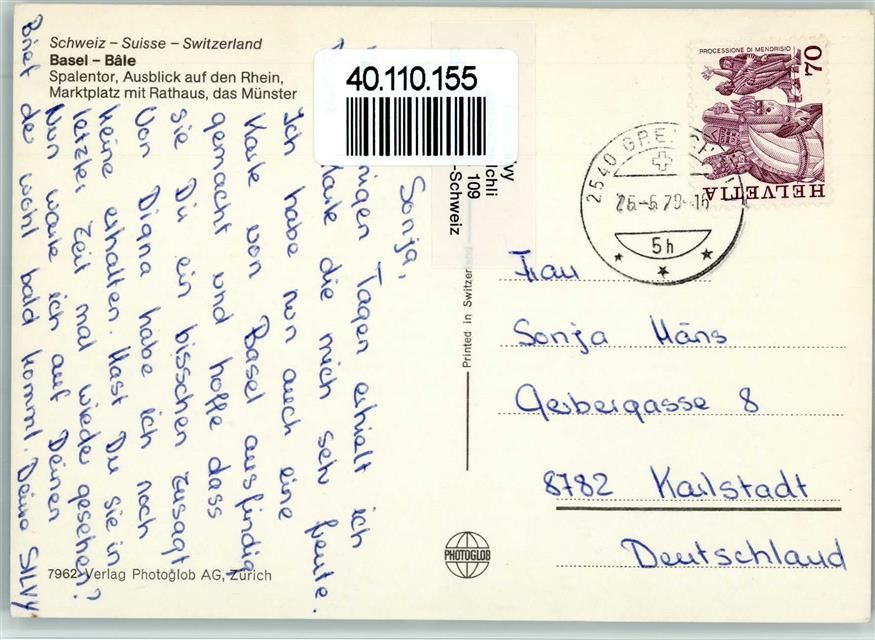 Schweiz – Suisse – Switzerland
Basel – Bâle
Spalentor, Ausblick auf den Rhein,
Marktplatz mit Rathaus, das Münster
40.110.155
109
-Schweiz
PROCESSIONE DI MENDRISIO
70
HELVETIA
2540
5h
Sonja,
Tagen erhielt ich
die mich sehr freute.
Ich habe nun auch eine
Karte von Basel ausfindig
gemacht und hoffe dass
sie Dir ein bisschen zusagt
Von Digna habe ich noch
keine erhalten. Hast Du sie in
letzter Zeit mal wieder gesehen?
Nun warte ich auf Deinen
Brief der wohl bald kommt. Deine SILVY
Printed in Switzerland
Frau
Sonja Häns
Gerbergasse 8
8782 Karlstadt
Deutschland
PHOTOGLOB
7962 Verlag Photoglob AG, Zürich